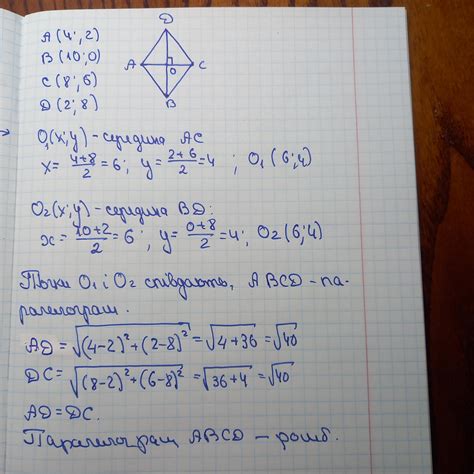 A(4;2)
B(10;0)
C(8;6)
D(2;8)
D
A
O
C
B
O₁(x;y) - середина AC
x = \frac{4+8}{2} = 6; y = \frac{2+6}{2} = 4 ; O₁(6;4)
O₂(x;y) - середина BD:
x = \frac{10+2}{2} = 6 ; y = \frac{0+8}{2} = 4; O₂(6;4)
Точки O₁ і O₂ співдають, ABCD - па-
ралелограм.
AD = \sqrt{(4-2)²+(2-8)²} = \sqrt{4+36} = \sqrt{40}
DC = \sqrt{(8-2)²+(6-8)²} = \sqrt{36+4} = \sqrt{40}
AD = DC.
Паралелограм ABCD - ромб.